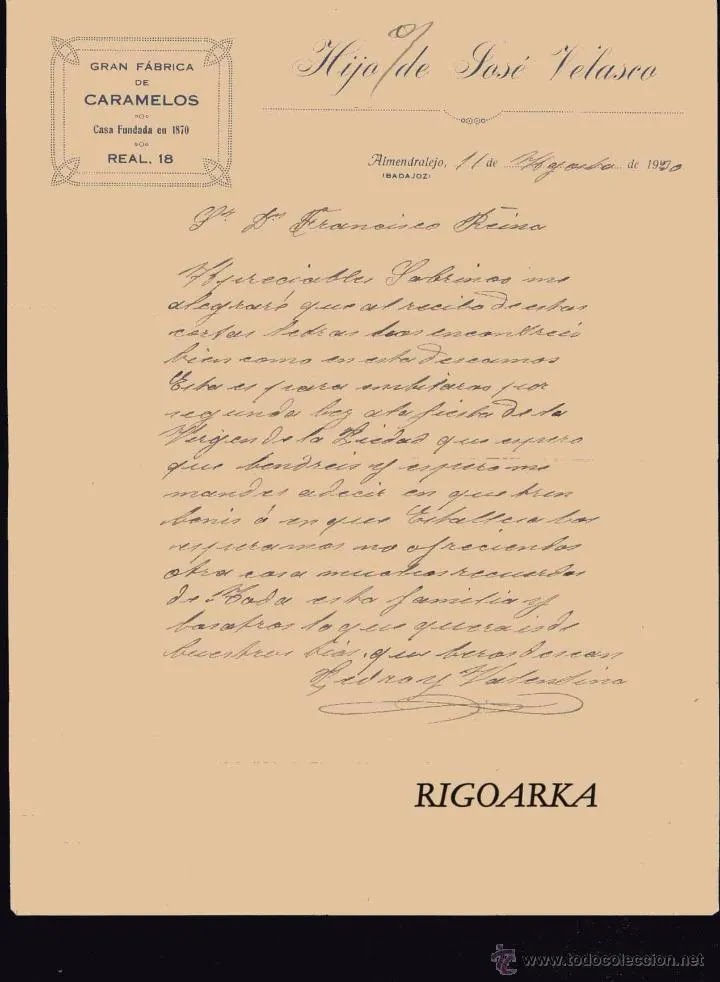 GRAN FÁBRICA
DE
CARAMELOS
Casa Fundada en 1870
REAL, 18
Hijo de José Velasco
Almendralejo, 11 de Agosto de 1920
(BADAJOZ)
Sr Dn Francisco Reina
Apreciables Sobrinos me
alegraré que al recibo de estas
cortas letras os encontreis
bien como en esta deseamos
Esta es para imbitaros por
segunda bez a la fiesta de la
Virgen de la Piedad que espero
que bendreis y espero me
mandes a decir en que tren
benis ó en que
esperamos no ofreciendos
otra cosa muchos recuerdos
de Toda esta familia y
bosotros lo que querais de
buestros tios que beros desean
Pedro y Valentina
RIGOARKA
www.todocoleccion.net